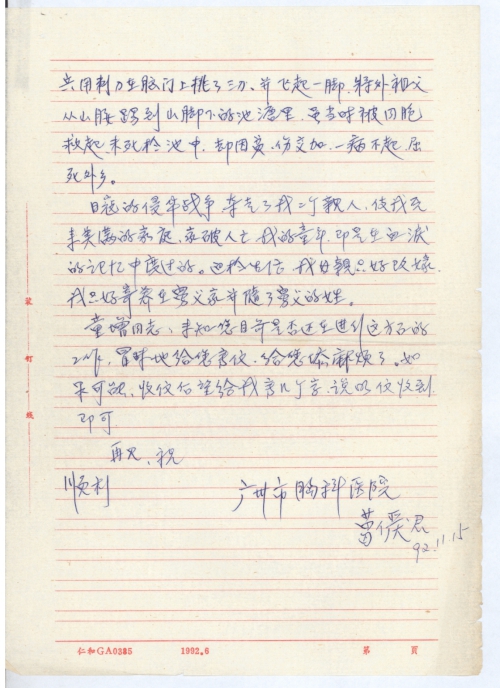 兵用刺刀在脑门上挑了三刀、并飞起一脚、将外祖父
从山腰踢到山脚下的池漂里、虽当时被同胞
救起、未死於池中、却因贫、伤交加、一病不起、屈
死外乡。
日寇的侵华战争、夺走了我二个亲人、使我原
来美满的家庭、家破人亡、我的童年、即是在血泪
的记忆中度过的。迫於生活、我母亲只好改嫁、
我只好寄养在寄父家并随了寄父的姓。
童增同志、未知您目前是否还在进行这方面的
工作、冒昧地给您写信、给您添麻烦了。如
果可能、收信后望给我写几个字、说明信收到
即可
再见、祝
顺利
广州市胸科医院
92.11.15
装
订
线
仁和GA0385 1992.6 第 页